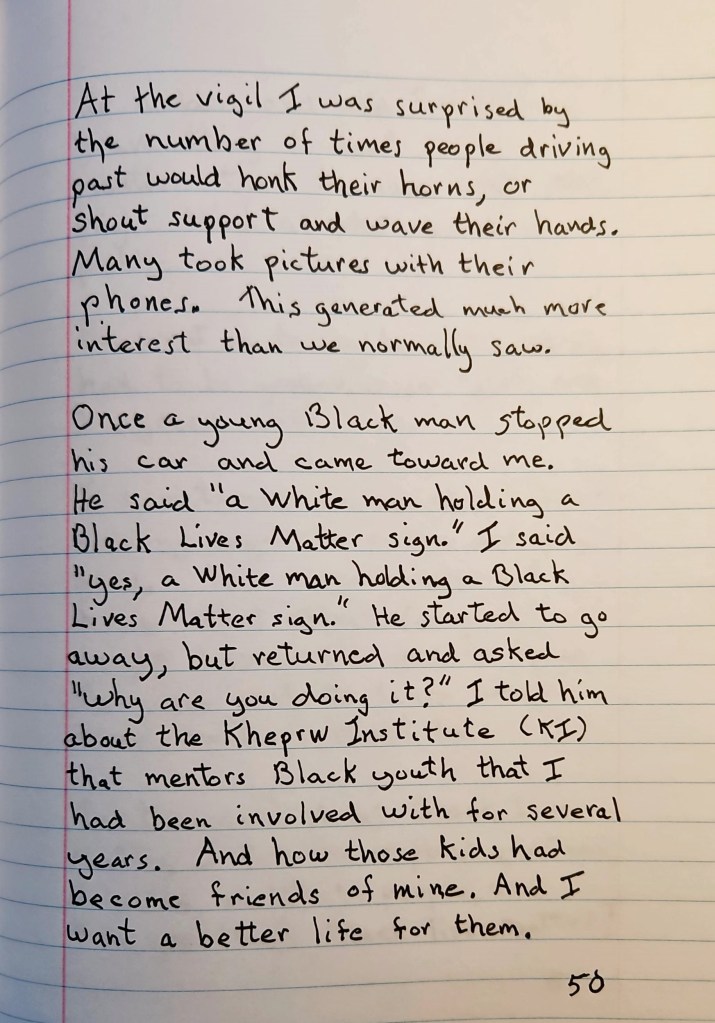 At the vigil I was surprised by
the number of times people driving
past would honk their horns, or
shout support and wave their hands.
Many took pictures with their
phones. This generated much more
interest than we normally saw.
Once a young Black man stopped
his car and came toward me.
He said "a White man holding a
Black Lives Matter sign." I said
"yes, a White man holding a Black
Lives Matter sign." He started to go
away, but returned and asked
"Why are you doing it?" I told him
about the Kheprw Institute (KI)
that mentors Black youth that I
had been involved with for several
years. And how those kids had
become friends of mine. And I
want a better life for them.
50